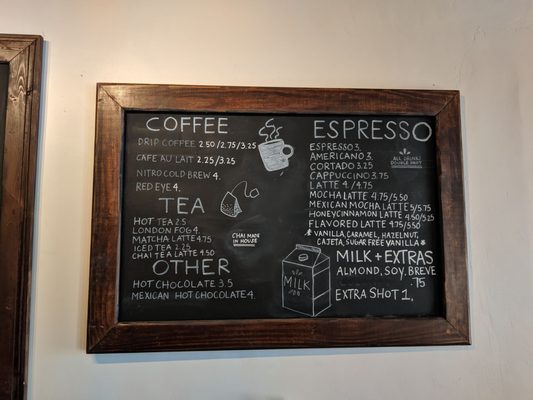 COFFEE
DRIP COFFEE 2.50/2.75/3.25
CAFE AU LAIT 2.25/3.25
NITRO COLD BREW 4.
RED EYE 4.
TEA
HOT TEA 2.5
LONDON FOG 4.
MATCHA LATTE 4.75
ICED TEA 2.25
CHAI TEA LATTE 4.50
CHAI MADE
IN HOUSE
OTHER
HOT CHOCOLATE 3.5
MEXICAN HOT CHOCOLATE 4.
ESPRESSO
ESPRESSO 3.
AMERICANO 3.
CORTADO 3.25
CAPPUCCINO 3.75
LATTE 4./4.75
MOCHA LATTE 4.75/5.50
MEXICAN MOCHA LATTE 5/5.75
HONEYCINNAMON LATTE 4.50/5.25
FLAVORED LATTE 4.75/5.50
* VANILLA, CARAMEL, HAZELNUT,
CAJETA, SUGAR FREE VANILLA *
ALL DRINKS
DOUBLE SHOT
MILK + EXTRAS
ALMOND, SOY, BREVE
.75
EXTRA SHOT 1.
MILK